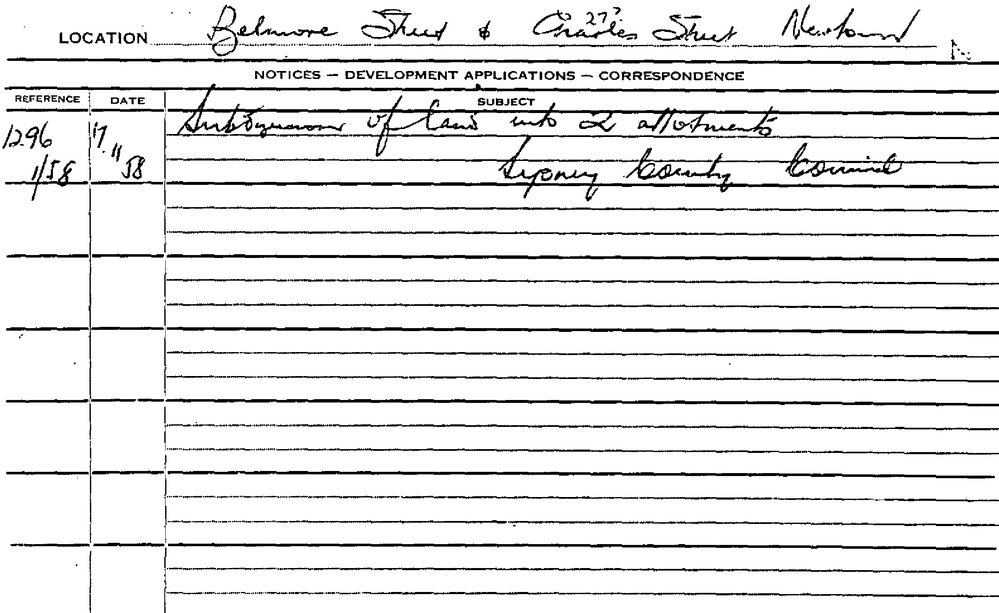 LOCATION Belmore Street & Charles Street Newtown
277
NOTICES — DEVELOPMENT APPLICATIONS — CORRESPONDENCE
REFERENCE DATE SUBJECT
1296 17. Subdivision of land into 2 allotments
1/58 11 58 Sydney County Council